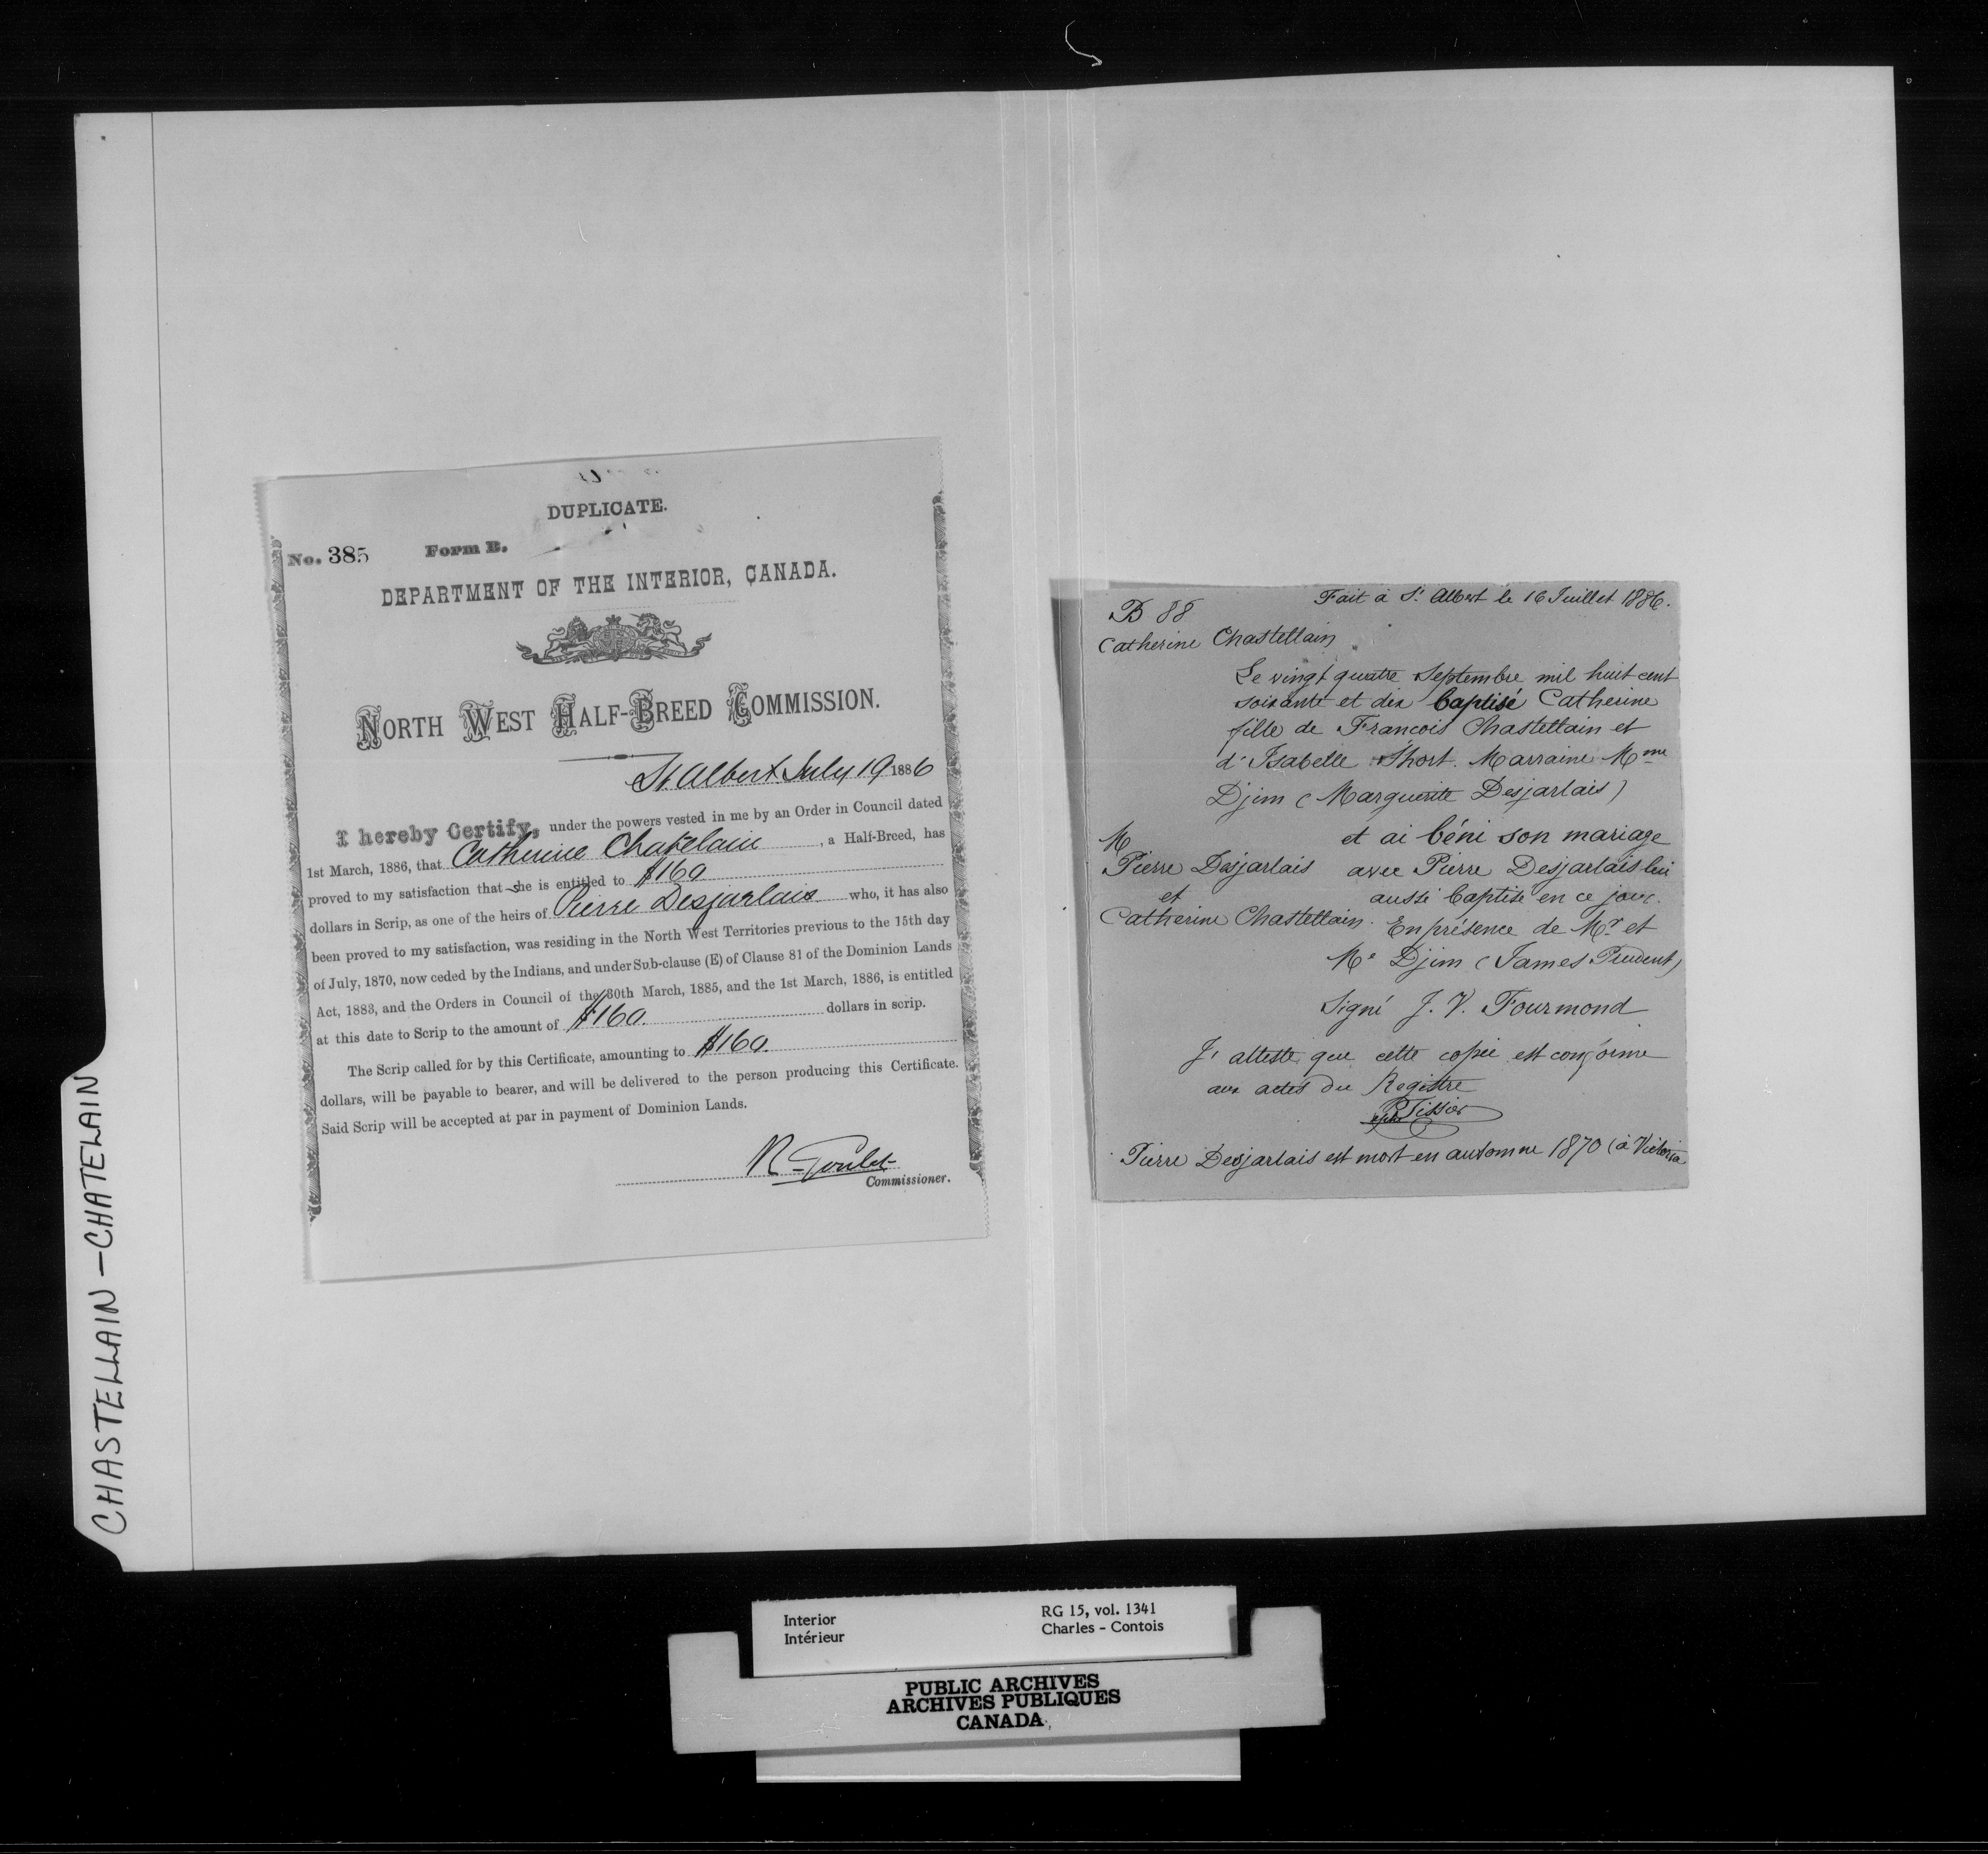 CHASTELLAIN - CHATELAIN
DUPLICATE.
No. 385 Form B.
DEPARTMENT OF THE INTERIOR, CANADA.
NORTH WEST HALF-BREED COMMISSION.
St. Albert July 19 1886
I hereby Certify, under the powers vested in me by an Order in Council dated
1st March, 1886, that Catherine Chatelain, a Half-Breed, has
proved to my satisfaction that she is entitled to $160
dollars in Scrip, as one of the heirs of Pierre Desjarlais who, it has also
been proved to my satisfaction, was residing in the North West Territories previous to the 15th day
of July, 1870, now ceded by the Indians, and under Sub-clause (E) of Clause 81 of the Dominion Lands
Act, 1883, and the Orders in Council of the 30th March, 1885, and the 1st March, 1886, is entitled
at this date to Scrip to the amount of $160. dollars in scrip.
The Scrip called for by this Certificate, amounting to $160.
dollars, will be payable to bearer, and will be delivered to the person producing this Certificate.
Said Scrip will be accepted at par in payment of Dominion Lands.
R. Goulet
Commissioner.
Fait à St Albert le 16 Juillet 1886.
B 88
Catherine Chastellain
Le vingt quatre Septembre mil huit cent
soixante et dix baptisé Catherine
fille de Francois Chastellain et
d'Isabelle Short. Marraine Mme
Djim (Marguerite Desjarlais)
M et ai béni son mariage
Pierre Desjarlais avec Pierre Desjarlais lui
et aussi baptisé en ce jour.
Catherine Chastellain. En présence de Mr et
Me Djim (James Prudent)
Signé J. V. Fourmond
J'atteste que cette copie est conforme
aux actes du Registre
Tissier
Pierre Desjarlais est mort en automne 1870 (à Victoria
Interior RG 15, vol. 1341
Intérieur Charles - Contois
PUBLIC ARCHIVES
ARCHIVES PUBLIQUES
CANADA